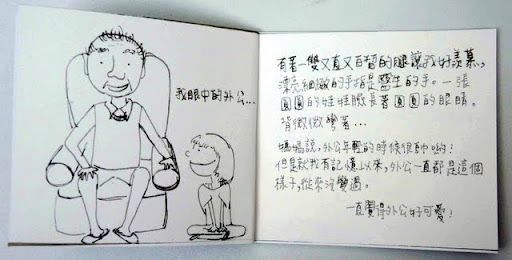 我眼中的外公...
有著一雙又直又白皙的腿讓我好羨慕,
漂亮細嫩的手指是醫生的手。一張
圓圓的娃娃臉長著圓圓的眼睛。
背微微彎著...
媽媽說,外公年輕的時候很帥喲!
但是就我有記憶以來,外公一直都是這個
樣子,從來沒變過。
一直覺得外公好可愛!